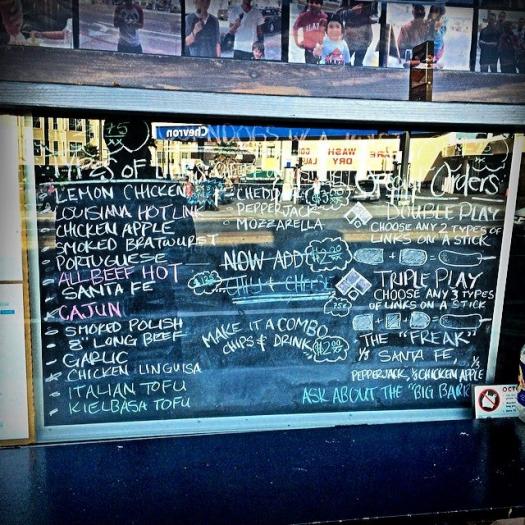 TYPES OF
LEMON CHICKEN
LOUISIANA HOT LINK
CHICKEN APPLE
SMOKED BRATWURST
PORTUGUESE
ALL BEEF HOT
SANTA FE
CAJUN
SMOKED POLISH
8" LONG BEEF
GARLIC
CHICKEN LINGUISA
ITALIAN TOFU
KIELBASA TOFU
Chevron
WASH
DRY
CHEDDAR
PEPPERJACK
MOZZARELLA
NOW ADD
CHILI & CHEESE
MAKE IT A COMBO
CHIPS & DRINK
$2.99
Special Orders
DOUBLE PLAY
CHOOSE ANY 2 TYPES
OF LINKS ON A STICK
TRIPLE PLAY
CHOOSE ANY 3 TYPES
OF LINKS ON A STICK
THE "FREAK"
1/3 SANTA FE, 1/3
PEPPERJACK, 1/3 CHICKEN APPLE
ASK ABOUT THE "BIG BARK"